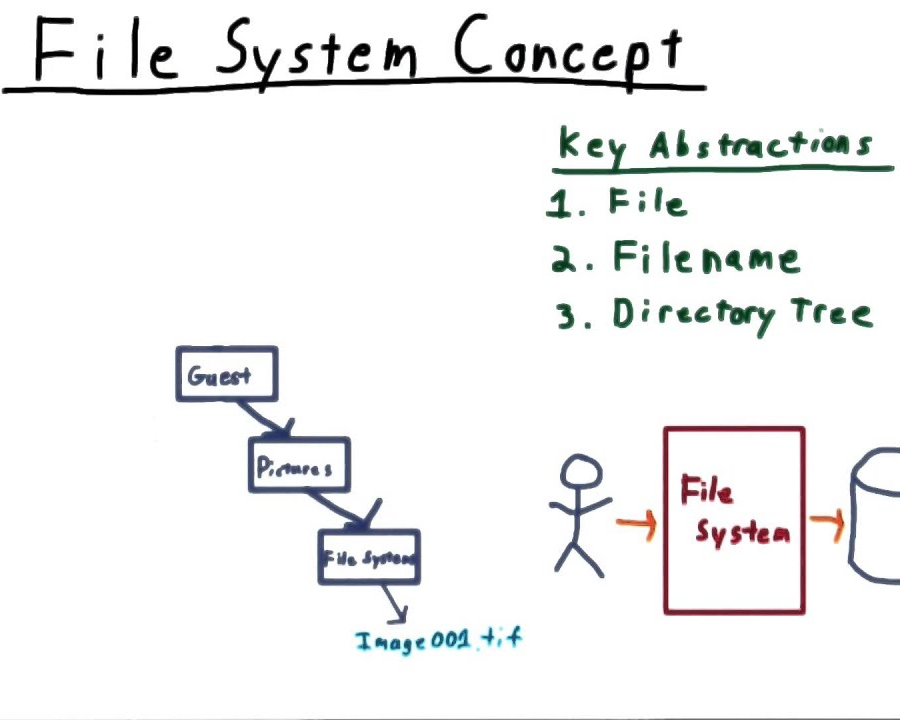 File System Concept
Key Abstractions
1. File
2. Filename
3. Directory Tree
Guest
Pictures
File Systems
Image001.tif
File
System